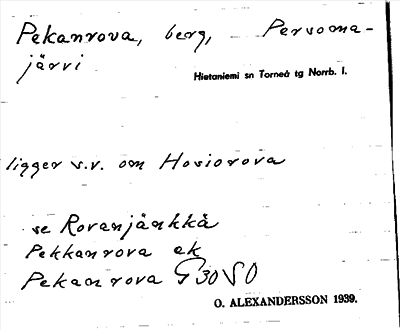 Pekanrova, berg, Persoma-
järvi
Hietaniemi sn Torneå tg Norrb. l.
ligger s.v. om Hosiorova
se Rovanjänkkä
Pekkanrova ek
Pekanrova G 30 SO
O. ALEXANDERSSON 1939.